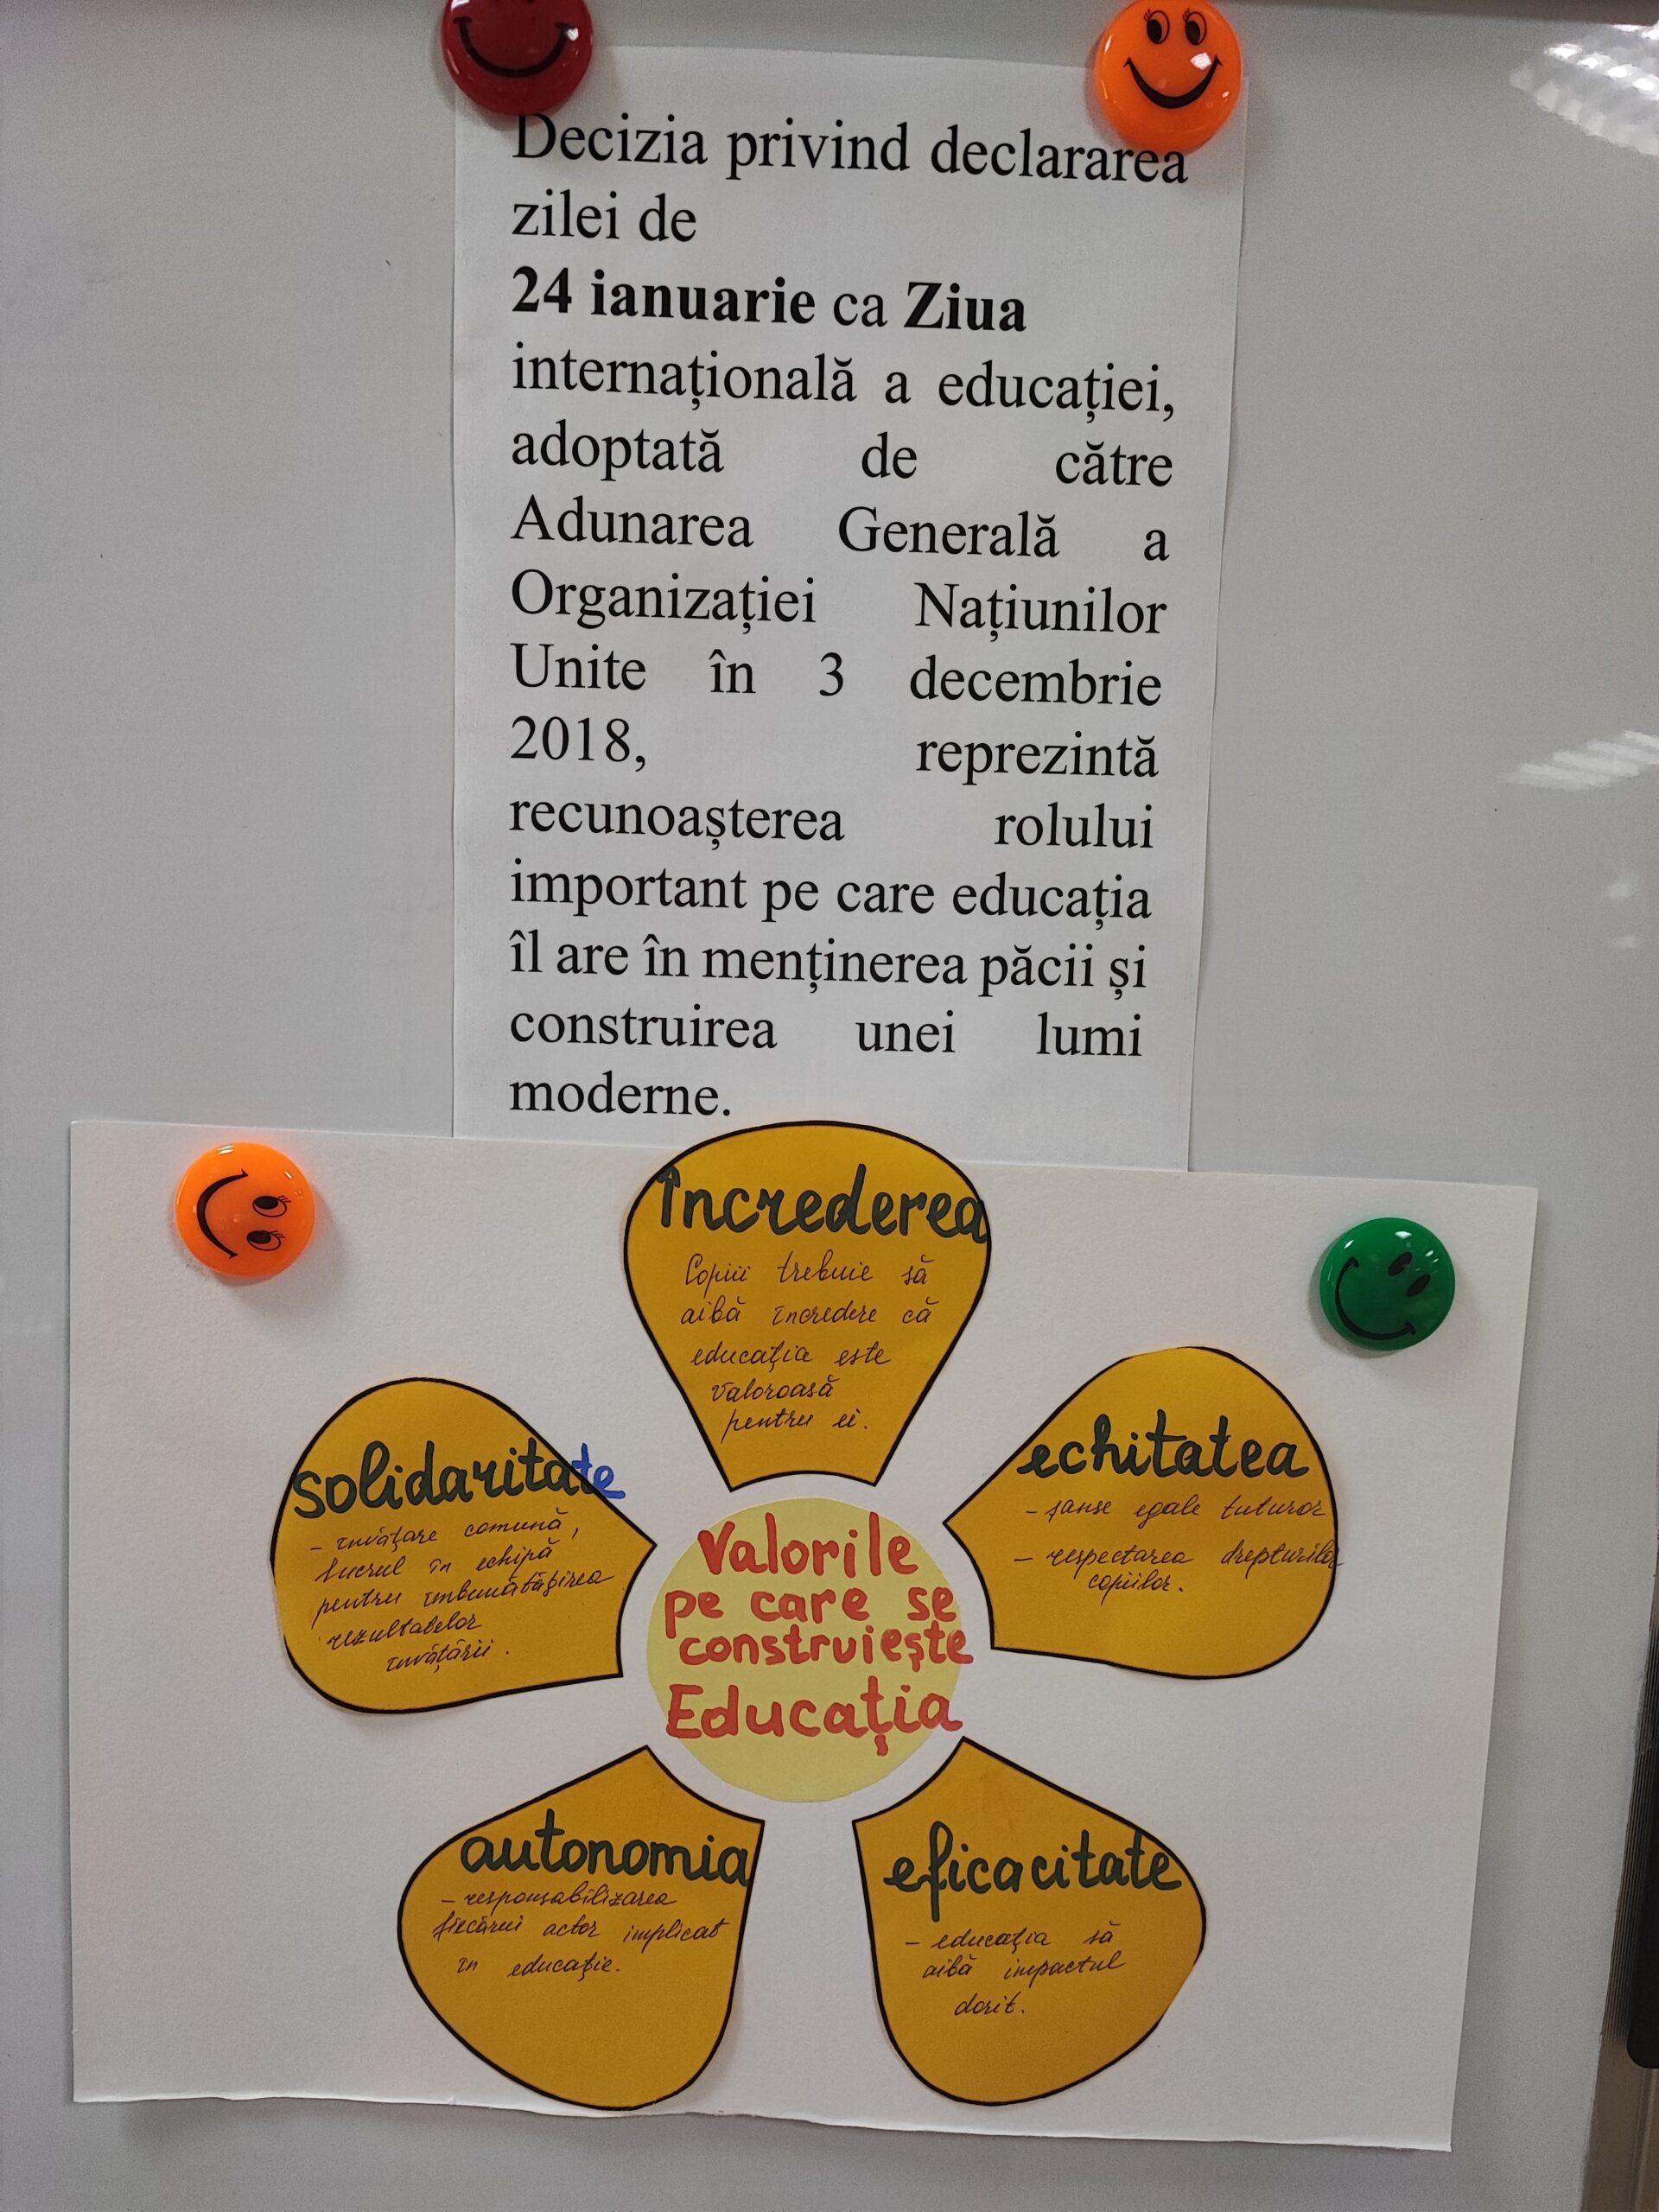 Decizia privind declararea
zilei de
24 ianuarie ca Ziua
internațională a educației,
adoptată de către
Adunarea Generală a
Organizației Națiunilor
Unite în 3 decembrie
2018, reprezintă
recunoașterea rolului
important pe care educația
îl are în menținerea păcii și
construirea unei lumi
moderne.
Încrederea
Copiii trebuie să
aibă încredere că
educația este
valoroasă
pentru ei.
solidaritate
- învățare comună,
lucrul în echipă
pentru îmbunătățirea
rezultatelor
învățării.
echitatea
- șanse egale tuturor
- respectarea drepturilor
copiilor.
Valorile
pe care se
construiește
Educația
autonomia
- responsabilizarea
fiecărui actor implicat
în educație.
eficacitate
- educația să
aibă impactul
dorit.